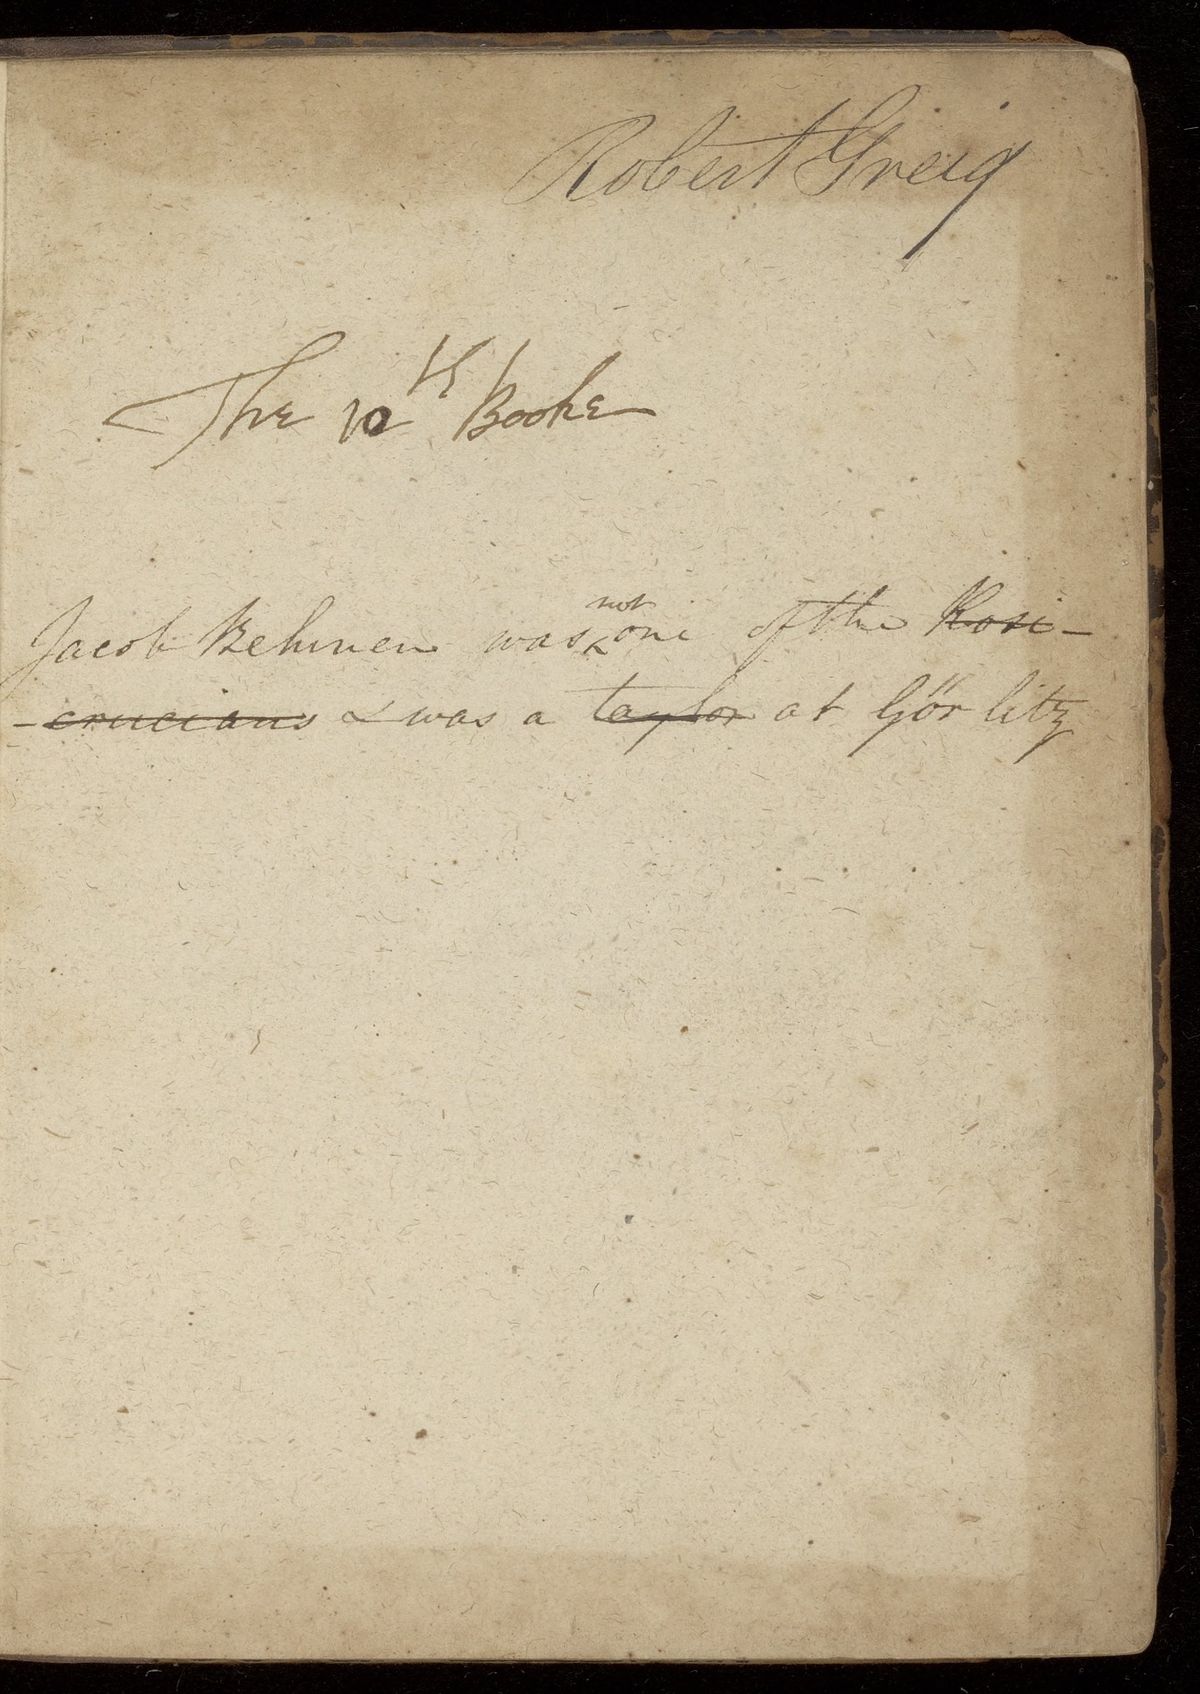 Robert Greig
The 10th Booke
Jacob Behmen was not one of the Rosi-
-crucians & was a taylor at Görlitz